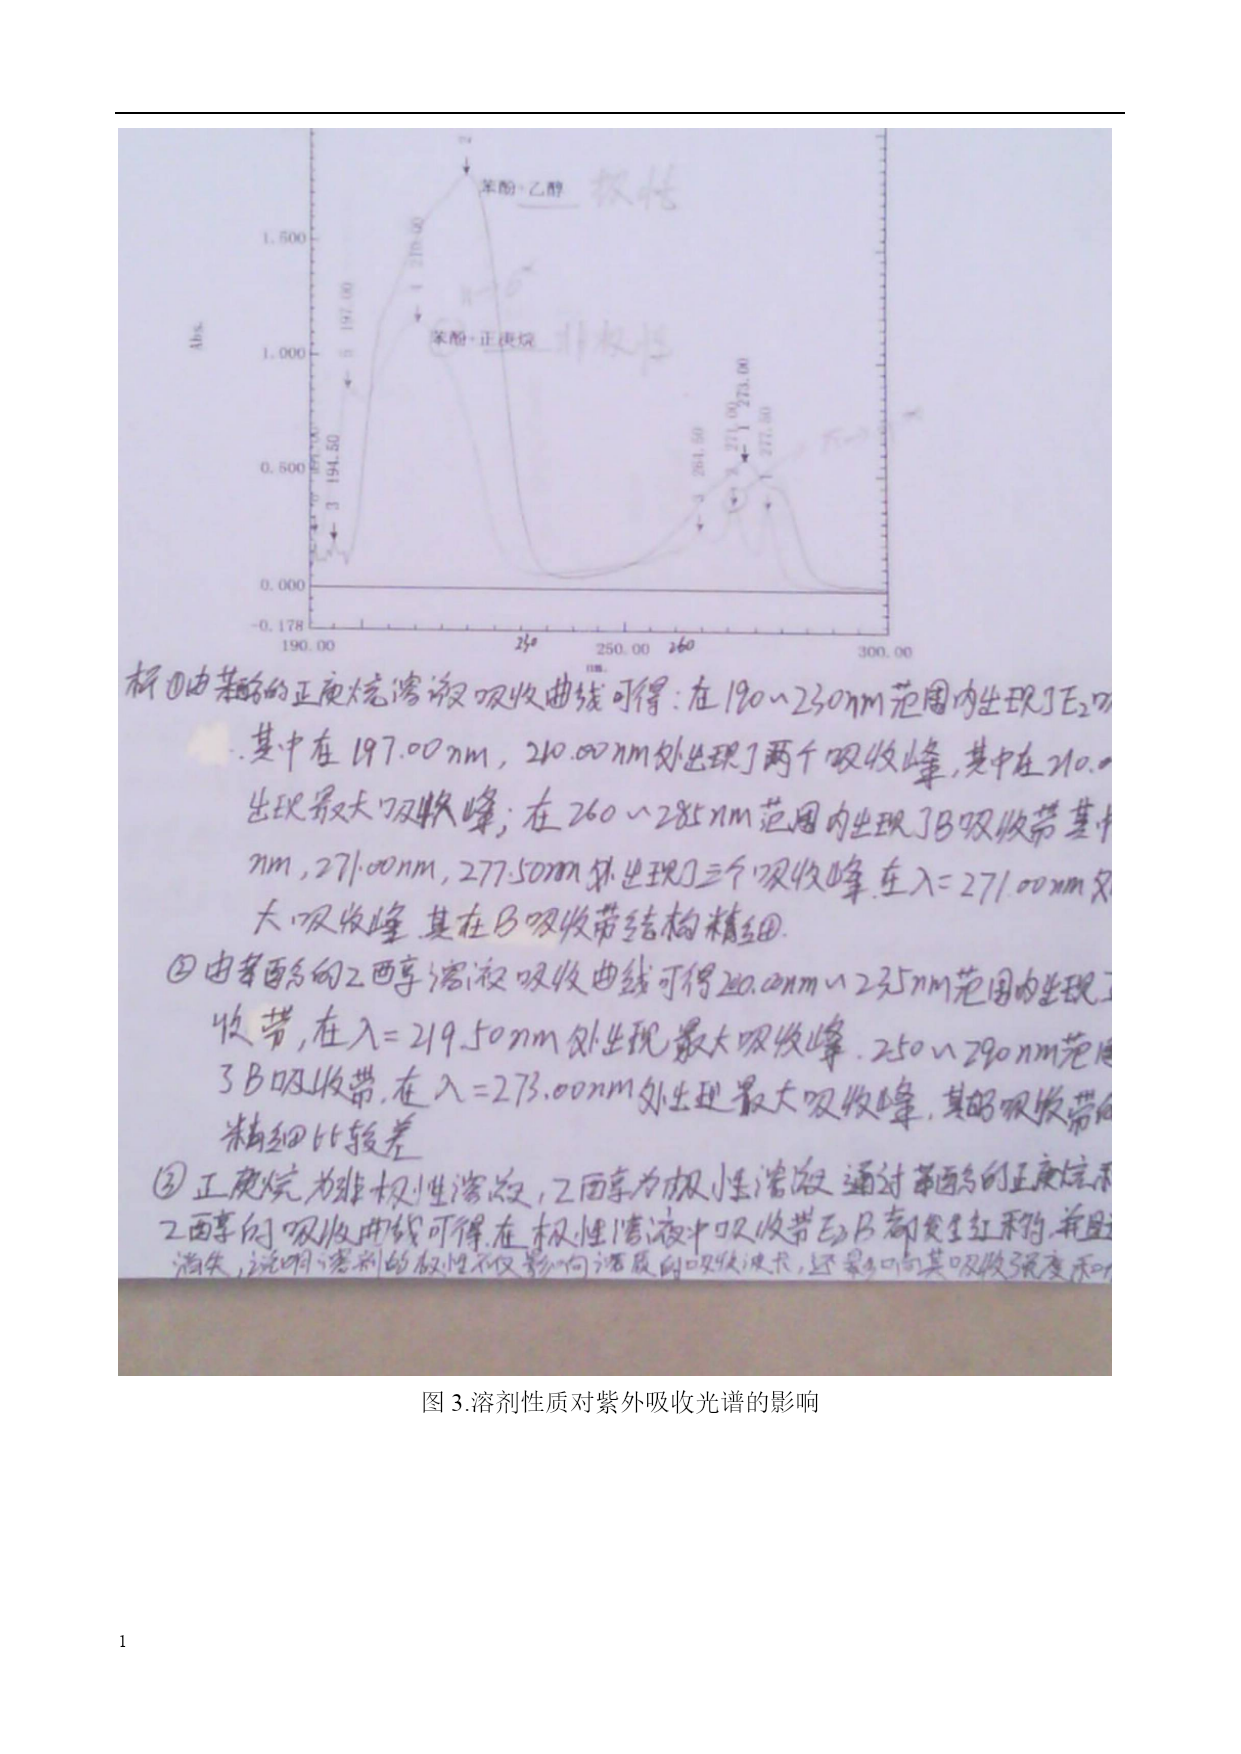 2
苯酚+乙醇 极性
1.500
4 210.00
n→σ*
5 197.00
苯酚+正庚烷 非极性
Abs.
1.000
1 273.00
2 271.00
1 277.50
3 264.50
π→π*
0.500
3 194.50
0.000
-0.178
190.00 230 250.00 260 300.00
nm.
析①由苯酚的正庚烷溶液吸收曲线可得:在190~230nm范围内出现了E₂吸
.其中在197.00nm,210.00nm处出现了两个吸收峰,其中在210.0
出现最大吸收峰;在260~285nm范围内出现了B吸收带其中
nm,271.00nm,277.50nm处出现了三个吸收峰.在λ=271.00nm处
大吸收峰.其在B吸收带结构精细.
②由苯酚的乙醇溶液吸收曲线可得200.00nm~235nm范围内出现了
收带,在λ=219.50nm处出现最大吸收峰.250~290nm范围
了B吸收带,在λ=273.00nm处出现最大吸收峰,其的吸收带的
精细比较差
③正庚烷为非极性溶液,乙醇为极性溶液 通过苯酚的正庚烷和
乙醇的吸收曲线可得.在极性溶液中吸收带E₂B都发生红移,并且
消失,说明溶剂的极性不仅影响溶质的吸收波长,还影响其吸收强度和
图 3.溶剂性质对紫外吸收光谱的影响
1